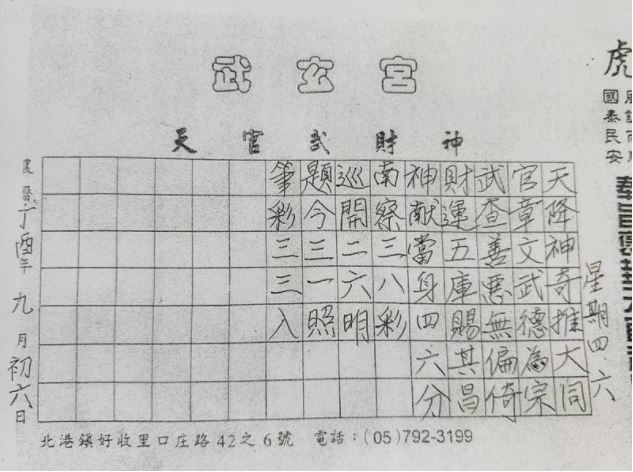 武玄宮
天官武財神
虎
國泰民安
星期四.六
天降神奇推大同
官章文武德為宗
武查善惡無偏倚
財運五庫賜其昌
神献當身四六分
南察三八彩
巡開二六明
題今三一照
筆彩三三入
農曆丁酉年九月初六日
北港鎮好收里口庄路42之6號 電話:(05)792-3199